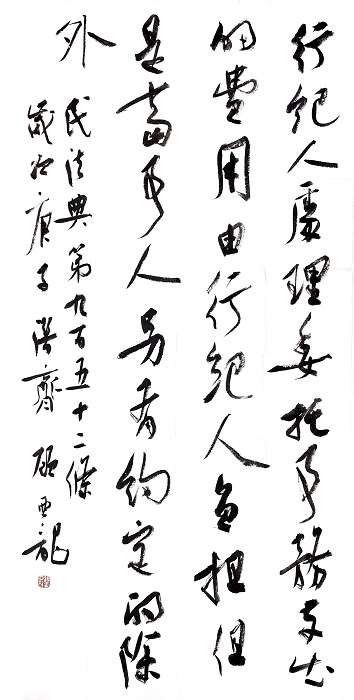 行紀人處理委托事務支出
的費用由行紀人負担但
是當事人另有約定的除
外
民法典第九百五十二條
歲次庚子 顧亞龍